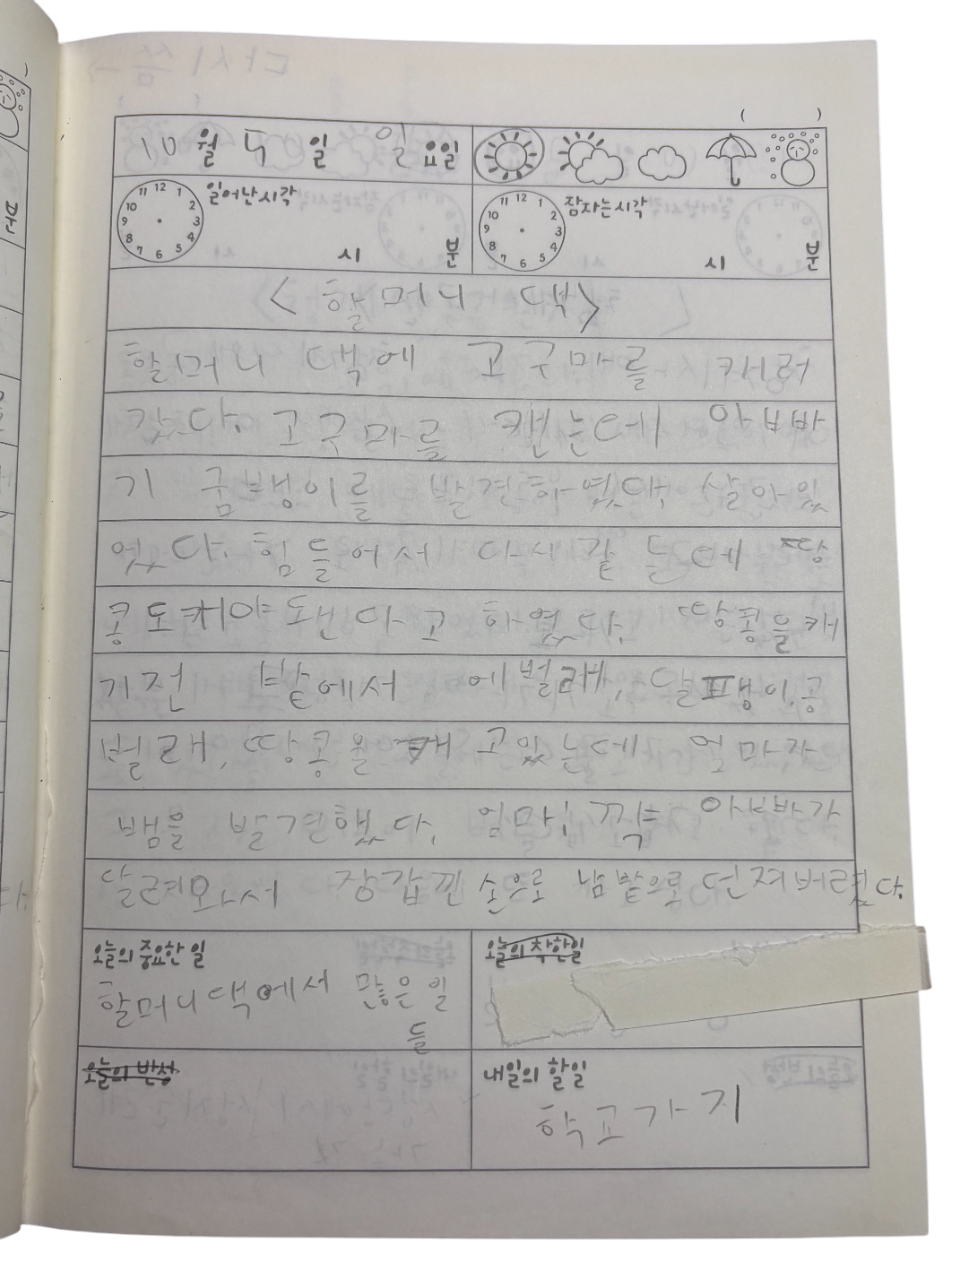 10월 5일 일요일
일어난시각
11 12 1
10 2
9 3
8 4
7 6 5
시 분
잠자는시각
11 12 1
10 2
9 3
8 4
7 6 5
시 분
<할머니 댁>
할머니 댁에 고구마를 캐러
갔다. 고구마를 캔는데 아빠
기 굼뱅이를 발견하였다. 살아있
었다. 힘들어서 다시갈 는데 땅
콩도캐야됀다고 하였다. 땅콩을캐
기전 밭에서 애벌래, 달팽이, 공
벌래, 땅콩을 캐고있는데 엄마가
뱀을 발견했다. 엄마! 꺅 아빠가
달려와서 장갑낀 손으로 남밭으로 던져버렸다.
오늘의 중요한 일
할머니댁에서 많은일
들
오늘의 착한일
오늘의 반성
내일의 할일
학교가기